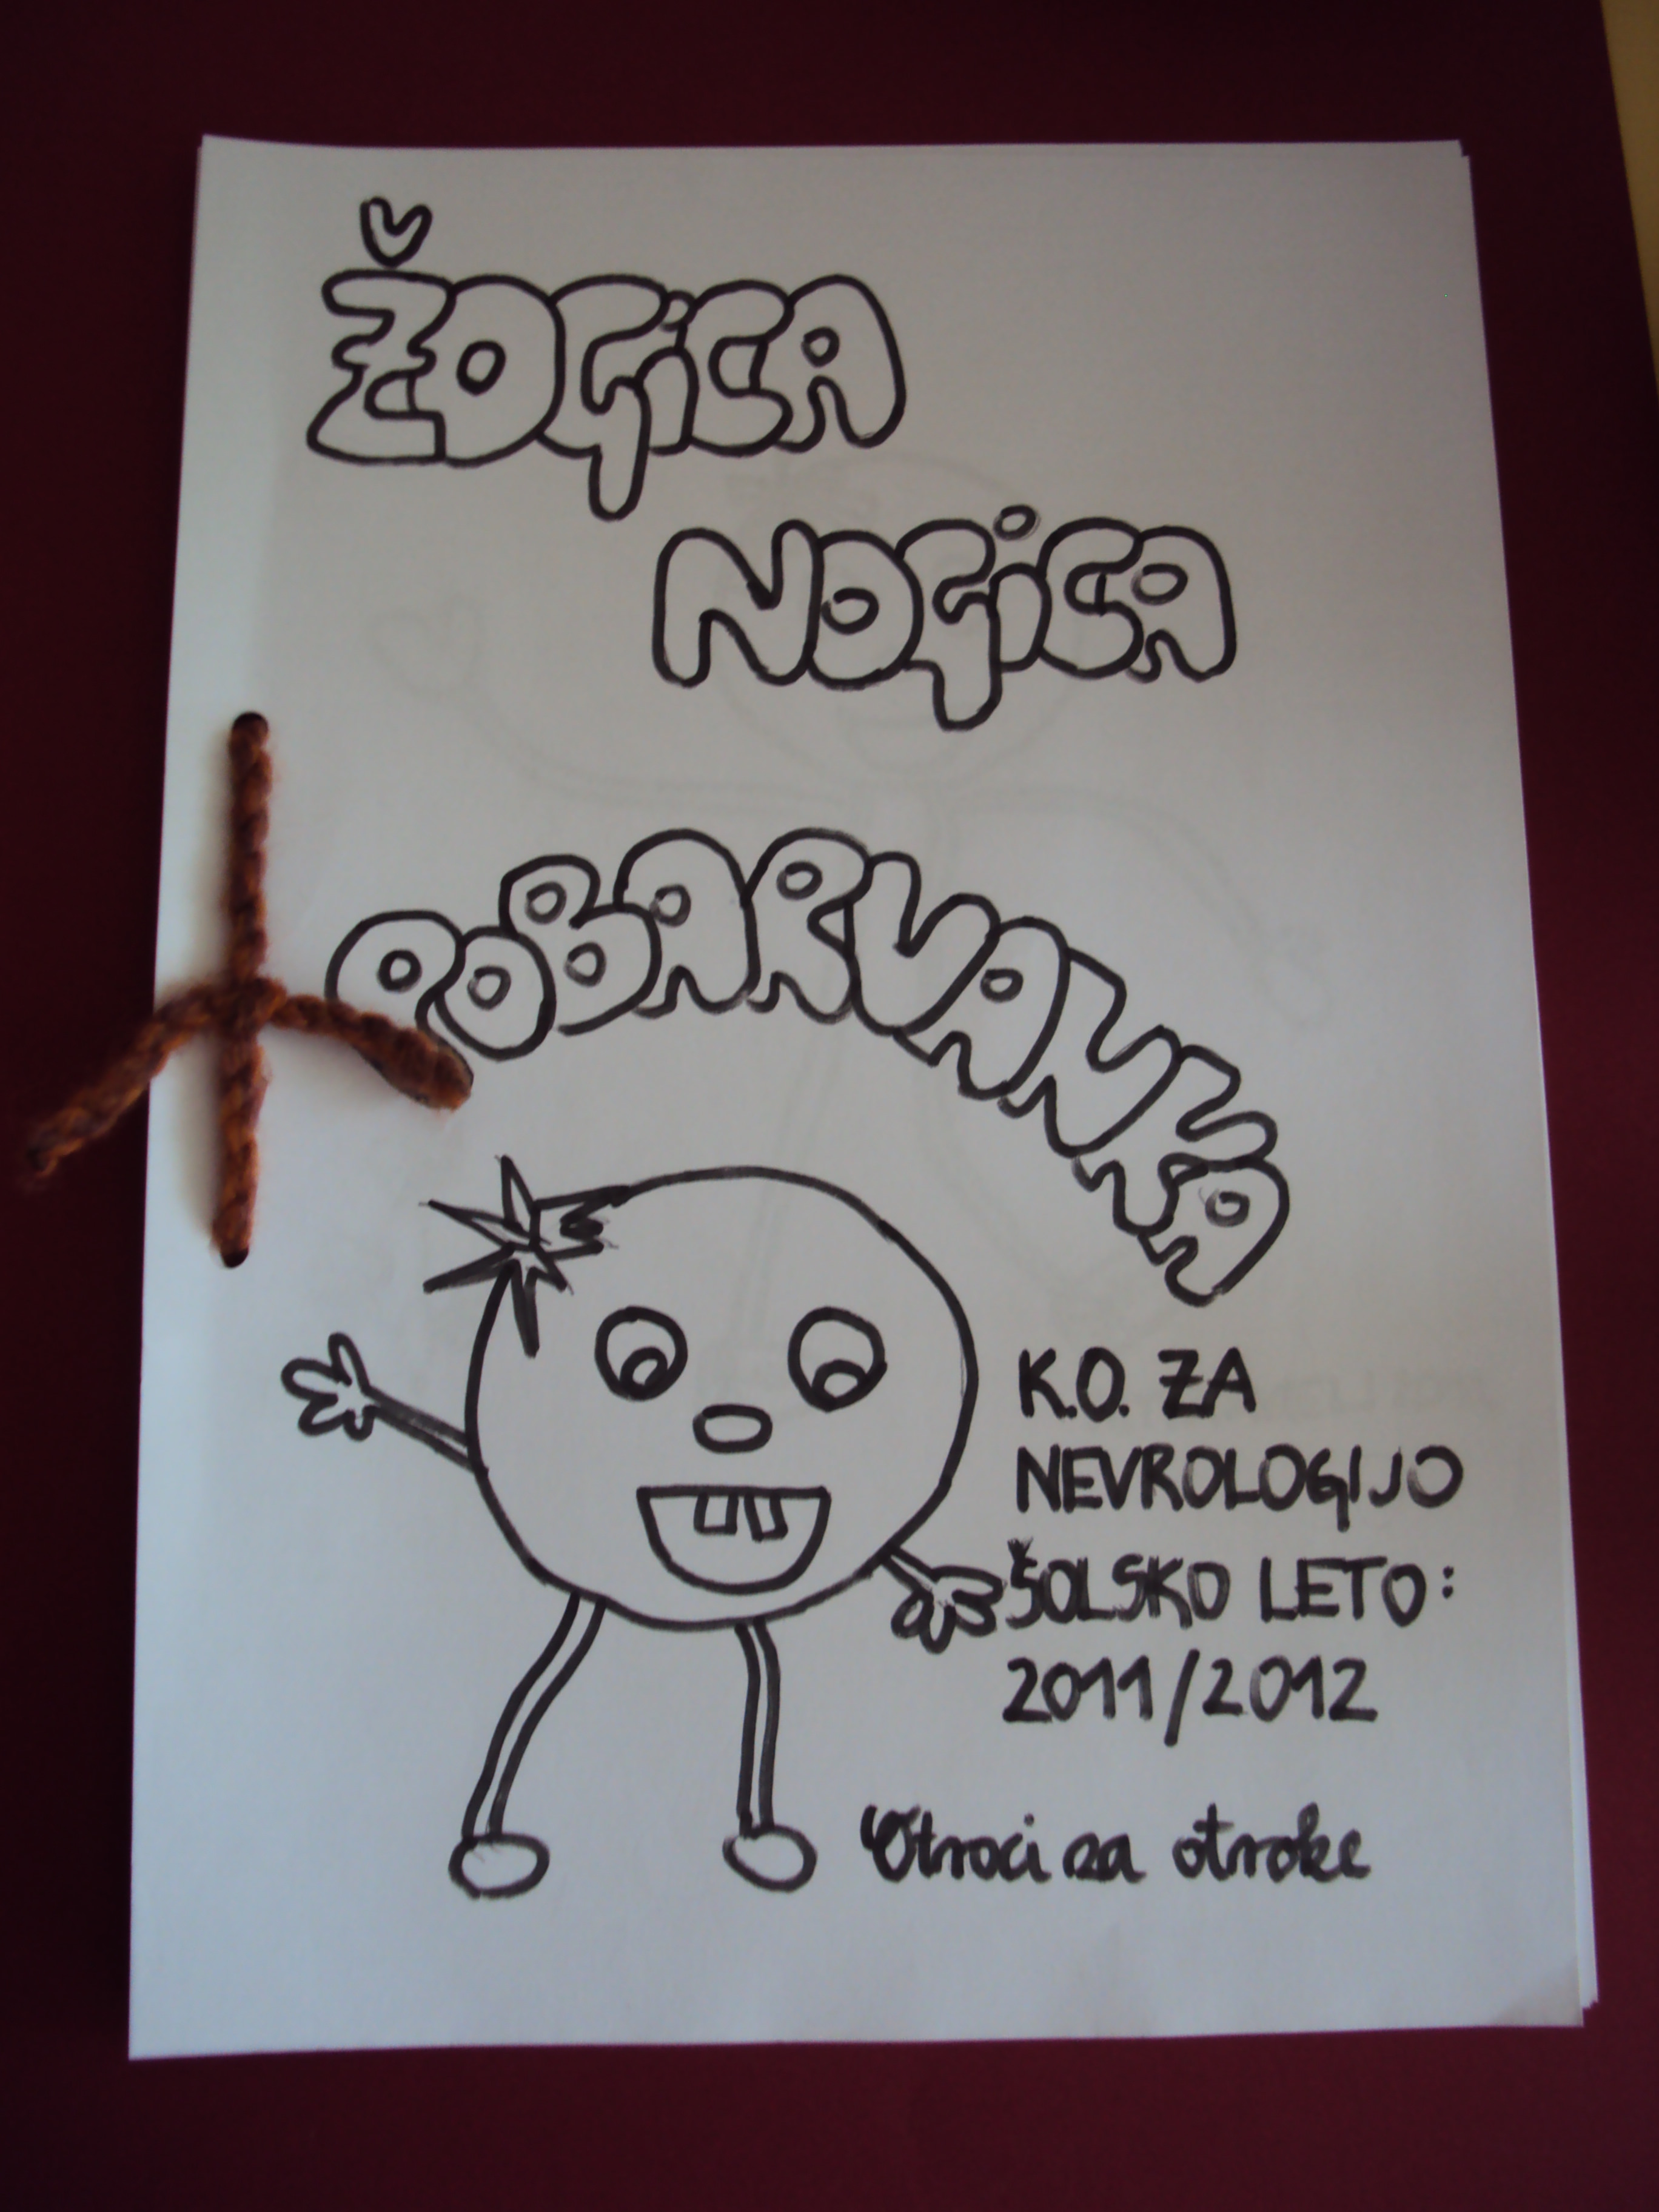 ŽOGICA
NOGICA
POBARVANKA
K.O. ZA
NEVROLOGIJO
ŠOLSKO LETO:
2011/2012
Otroci za otroke